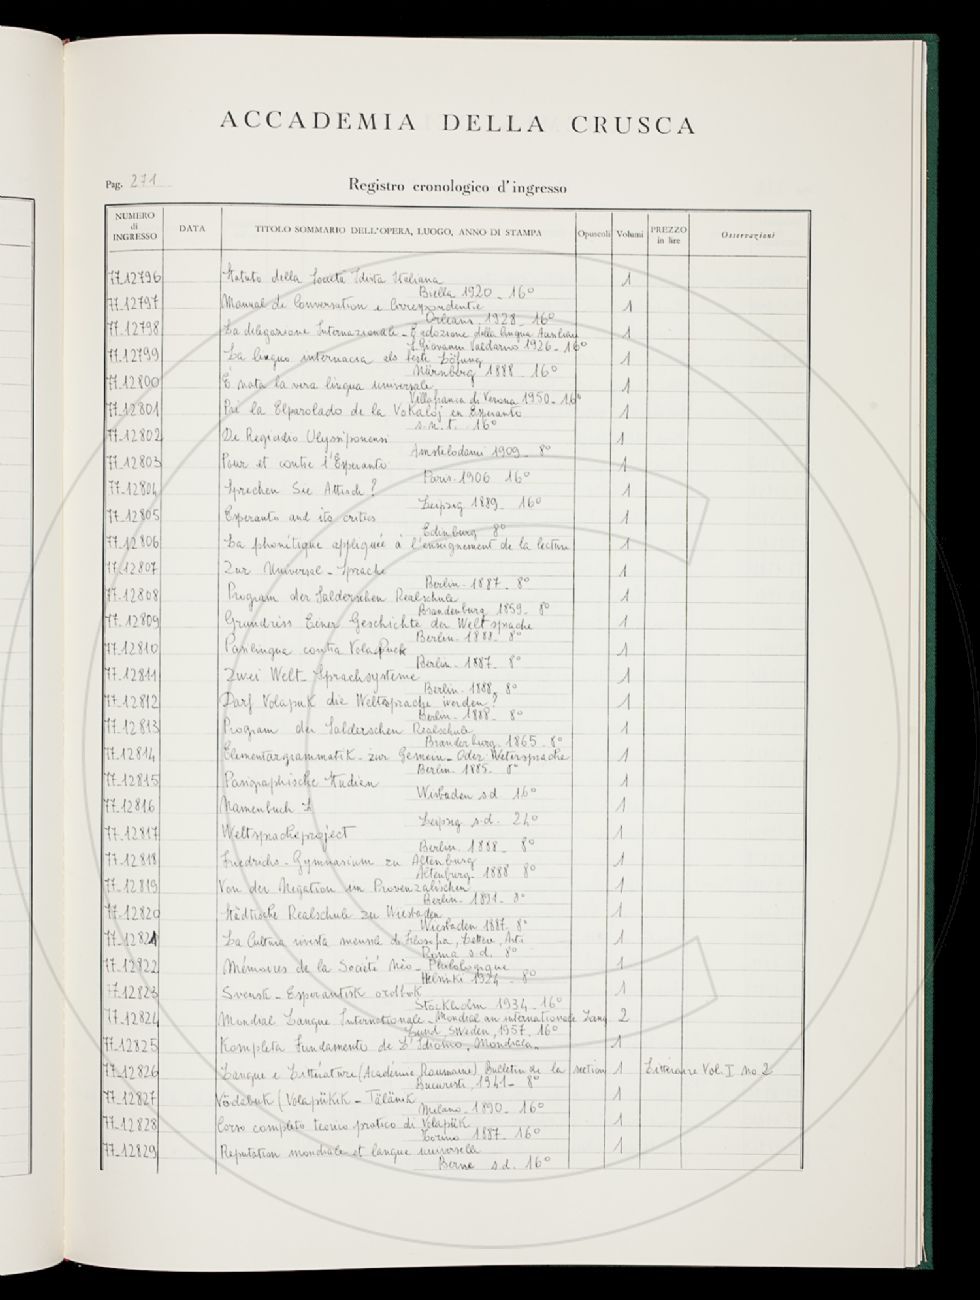 ACCADEMIA DELLA CRUSCA
Pag. 271
Registro cronologico d'ingresso
NUMERO di INGRESSO DATA TITOLO SOMMARIO DELL'OPERA, LUOGO, ANNO DI STAMPA Opuscoli Volumi PREZZO in lire Osservazioni
77-12796 Statuto della Società Idista Italiana 1
Biella 1920 - 16°
77-12797 Manual de Conversation e Correspondentie 1
Orleans, 1928 - 16°
77-12798 La delegazione Internazionale - E adozione della lingua Ausiliare 1
S. Giovanni Valdarno 1926 - 16°
77-12799 La linguo internacia els feste Löfung 1
Nürnberg 1888 - 16°
77-12800 È nata la vera lingua universale 1
Villafranca di Verona 1950 - 16°
77-12801 Pri la Elparolado de la Vokaloj en Esperanto 1
s.n.t. 16°
77-12802 De Regicidio Ulyssiponensi 1
Amstelodami 1909 - 8°
77-12803 Pour et contre l'Esperanto 1
Paris 1906 16°
77-12804 Sprechen Sie Attisch? 1
Leipzig 1889 - 16°
77-12805 Esperanto and its critics 1
Edinburg 8°
77-12806 La phonétique appliquée à l'enseignement de la lecture 1
77-12807 Zur Universal - Sprache 1
Berlin - 1887 - 8°
77-12808 Program der Salderschen Realschule 1
Brandenburg 1859 - 8°
77-12809 Grundriss Einer Geschichte der Weltsprache 1
Berlin - 1888 - 8°
77-12810 Paslingua contra Volapück 1
Berlin - 1887 - 8°
77-12811 Zwei Welt - Sprachsysteme 1
Berlin - 1888, 8°
77-12812 Darf Volapuk die Weltsprache werden? 1
Berlin - 1888 - 8°
77-12813 Program der Salderschen Realschule 1
Brandenburg 1865 - 8°
77-12814 Elementargrammatik - zur Gemein - Oder Wetersprache 1
Berlin - 1885 - 8°
77-12815 Pasigraphische Studien 1
Wisbaden s.d. 16°
77-12816 Namenbuch 1
Leipzig s.d. 24°
77-12817 Weltspracheproject 1
Berlin - 1888 - 8°
77-12818 Friedrichs - Gymnasium zu Altenburg 1
Altenburg - 1888 8°
77-12819 Von der Negation im Provenzalischen 1
Berlin - 1891 - 8°
77-12820 Städtische Realschule zu Wiesbaden 1
Wiesbaden 1887 - 8°
77-12821 La Cultura rivista mensile di Filosofia, Lettere, Arti 1
Roma s.d. 8°
77-12822 Mémoires de la Société Néo - Philologique 1
Helsinki 1924 - 8°
77-12823 Svensk - Esperantisk ordbok 1
Stockholm 1934 - 16°
77-12824 Mondial Langue Internationale - Mondial an internationale Lang. 2
Lund, Sweden, 1957 - 16°
77-12825 Kompleta Fundamento de L'Idiomo "Mondiala" 1
77-12826 Langue e Littérature (Académie Roumaine) Bulletin de la section 1 Littéraire Vol. I no 2
Bucuresti, 1941 - 8°
77-12827 Vödabuk (Volapükik - Tälänik 1
Milano - 1890 - 16°
77-12828 Corso completo teorico pratico di Volapük 1
Torino - 1887 - 16°
77-12829 Reputation mondiale et langue universelle 1
Berne s.d. 16°